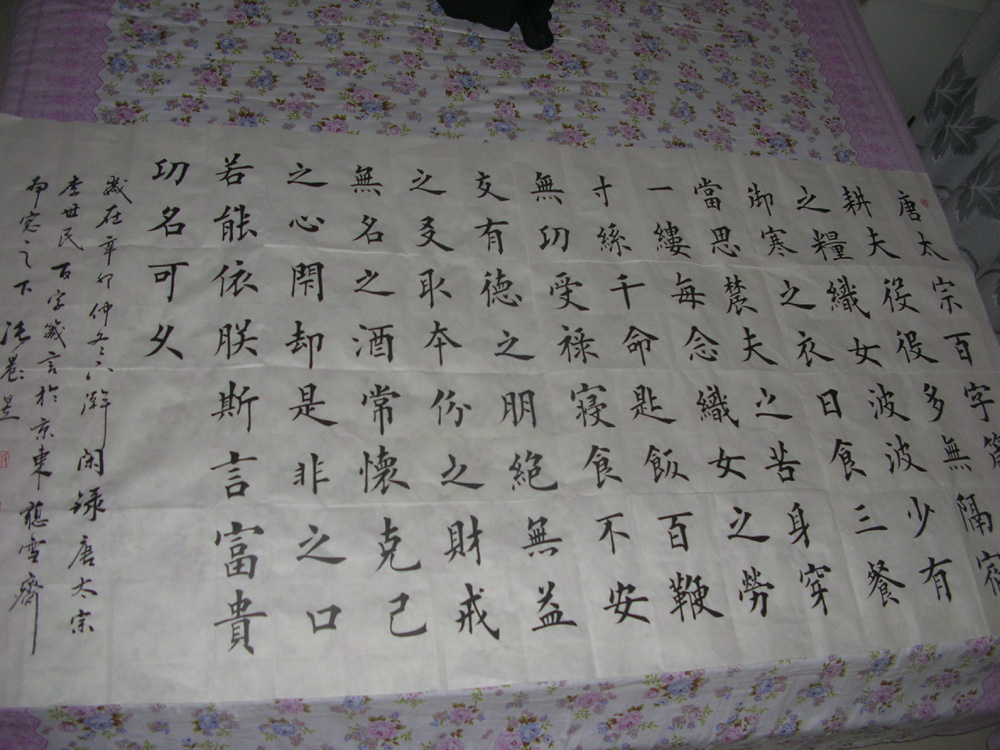 唐太宗百字箴
耕夫役役多無隔宿
之糧織女波波少有
御寒之衣日食三餐
當思農夫之苦身穿
一縷每念織女之勞
寸絲千命匙飯百鞭
無功受祿寢食不安
交有德之朋絕無益
之友取本份之財戒
無名之酒常懷克己
之心閉却是非之口
若能依朕斯言富貴
功名可久
歲在辛卯仲冬下澣閑録唐太宗
李世民百字箴言於京東憩雪齋
南窓之下